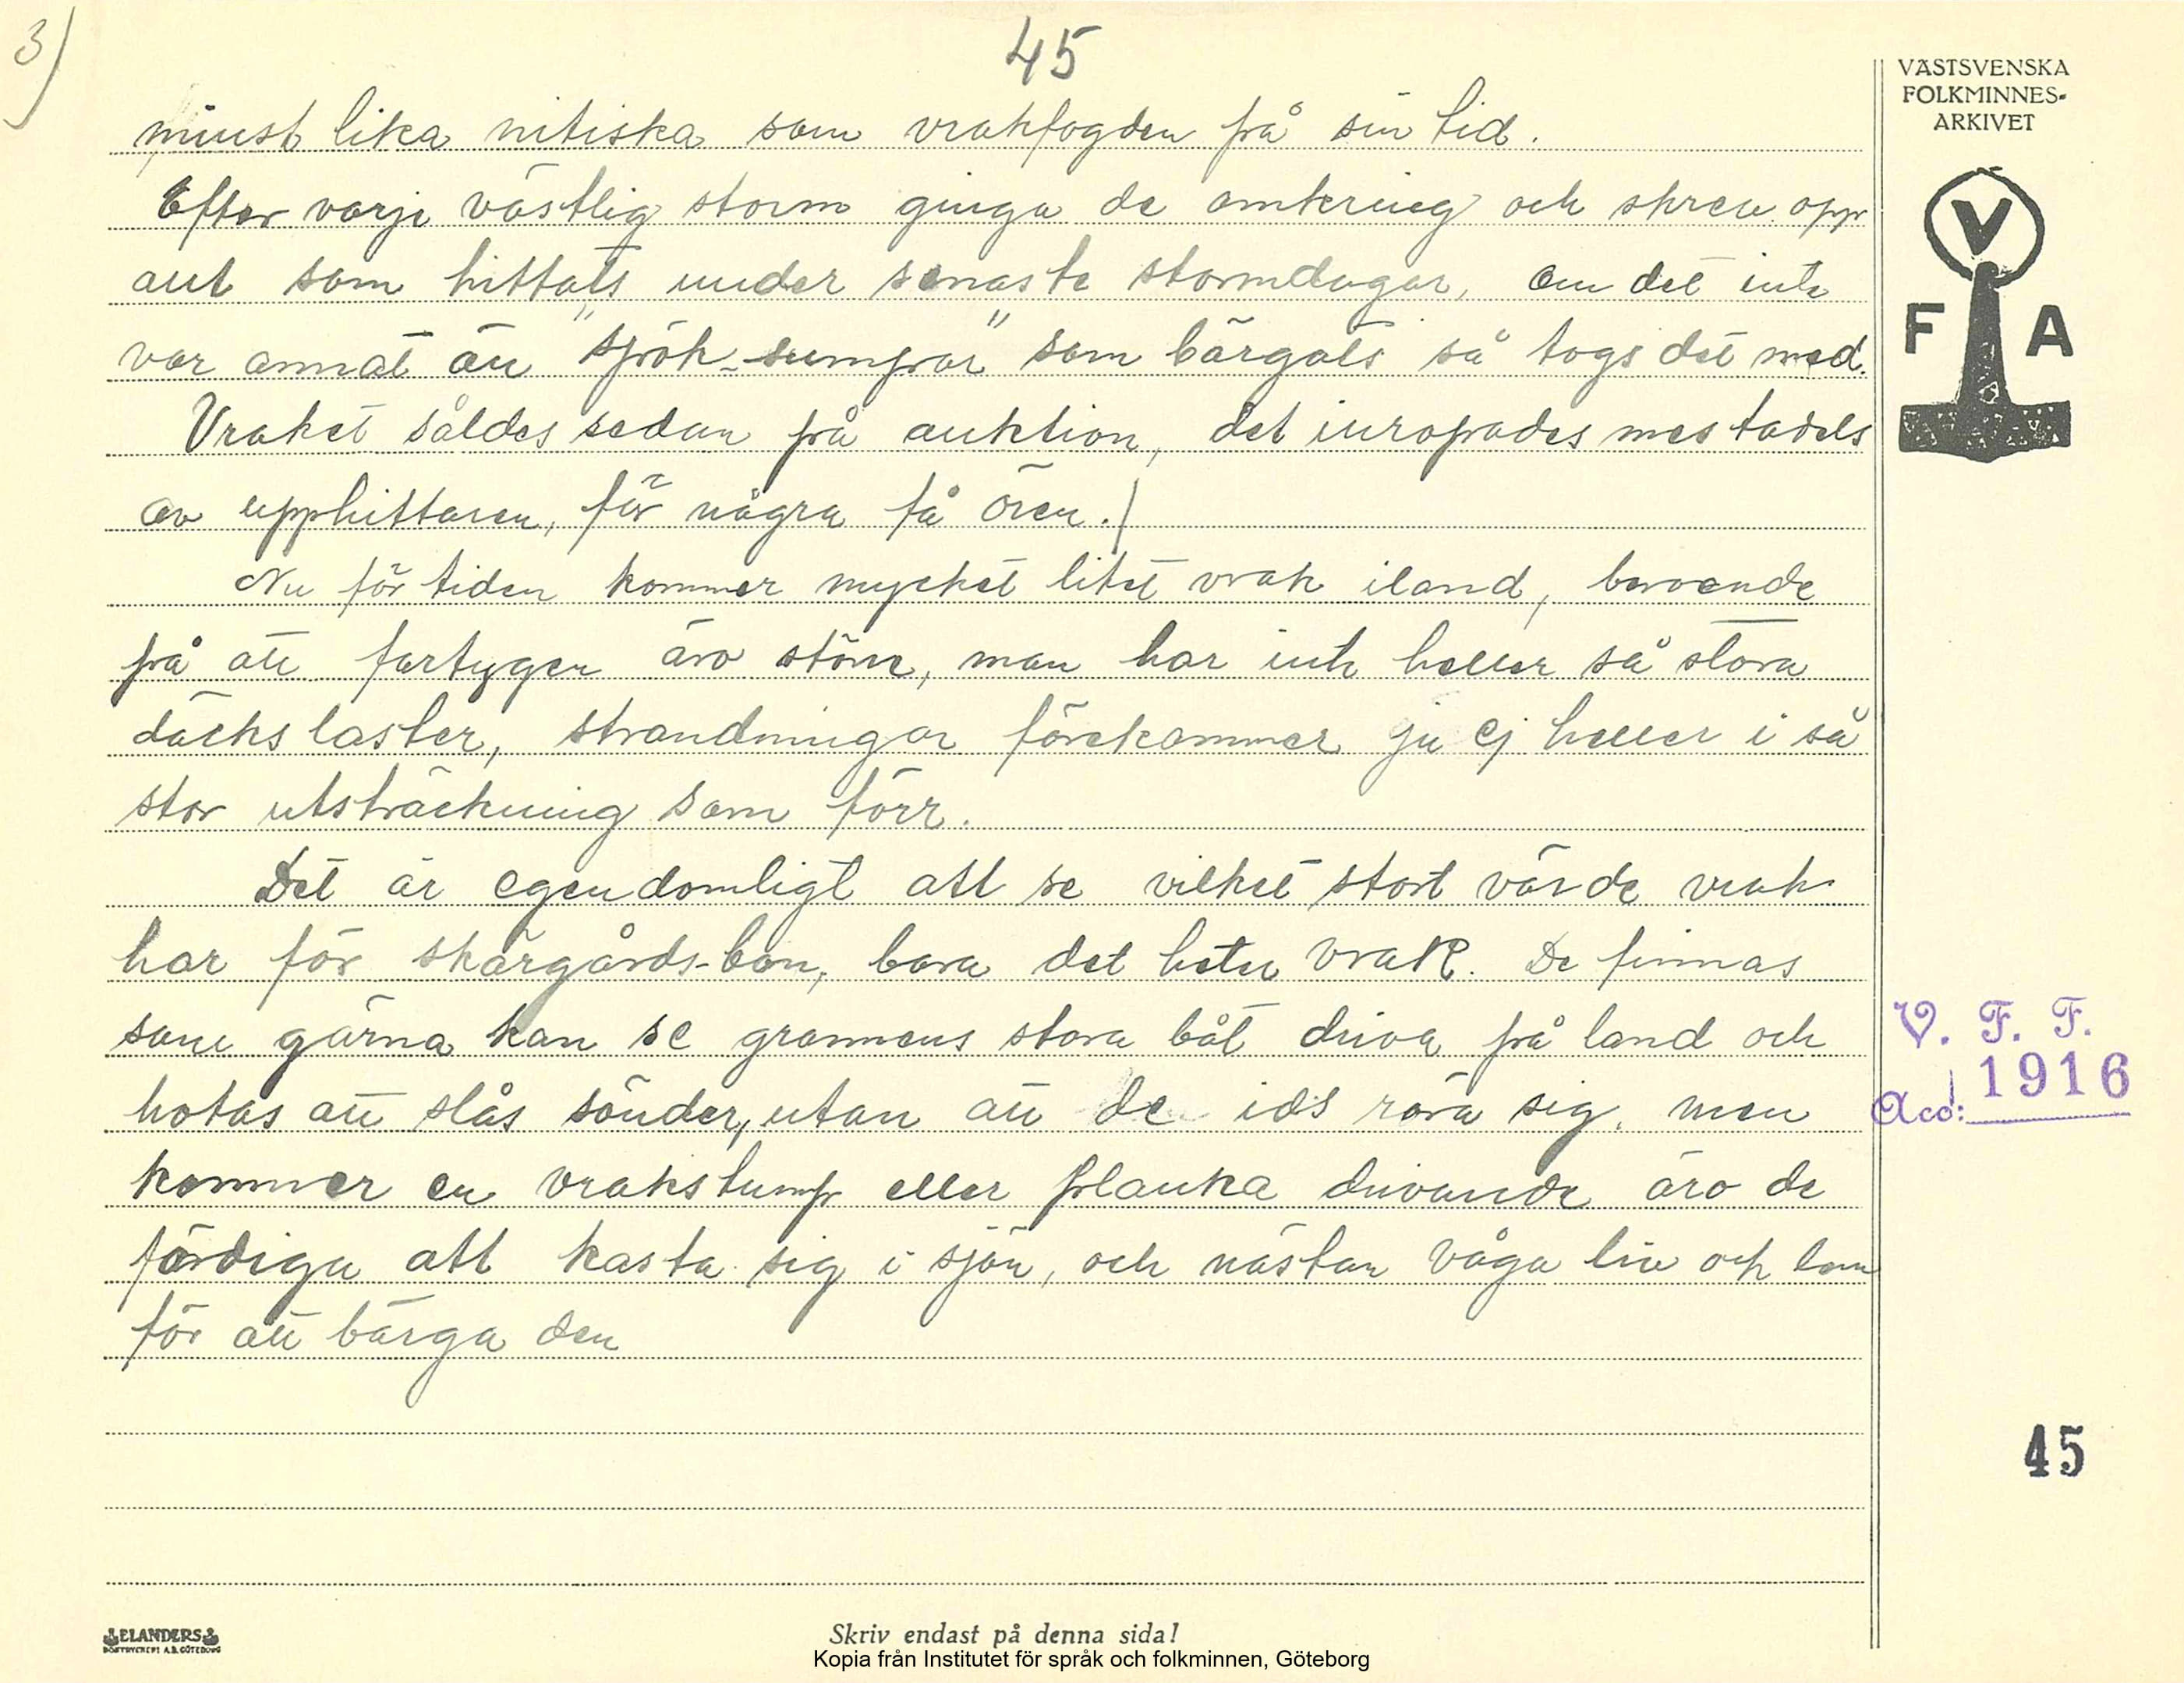 3)
45
minst lika nitiska som vrakfogden på sin tid.
Efter varje västlig storm gingo de omkring och skrev opp
allt som hittats under senaste stormdagar, om det inte
var annat än "spök-sumpar" som bärgats så togs det med.
Vraket såldes sedan på auktion, det inropades mestadels
av upphittaren, för några få ören./
Nu för tiden kommer mycket litet vrak iland, beroende
på att fartygen äro större, man har inte heller så stora
däckslaster, strandningar förekommer ju ej heller i så
stor utsträckning som förr.
Det är egendomligt att se vilket stort värde vrak
har för skärgårds-bon, bara det heter vrak. De finnas
som gärna kan se grannens stora båt driva på land och
hotas att slås sönder, utan att de ids röra sig, men
kommer en vrakstump eller planka drivande äro de
färdiga att kasta sig i sjön, och nästan våga liv och lem
för att bärga den
VÄSTSVENSKA
FOLKMINNES-
ARKIVET
V
F A
V. F. F.
Acc: 1916
45
ELANDERS
BOKTRYCKERI A.B. GÖTEBORG
Skriv endast på denna sida!
Kopia från Institutet för språk och folkminnen, Göteborg